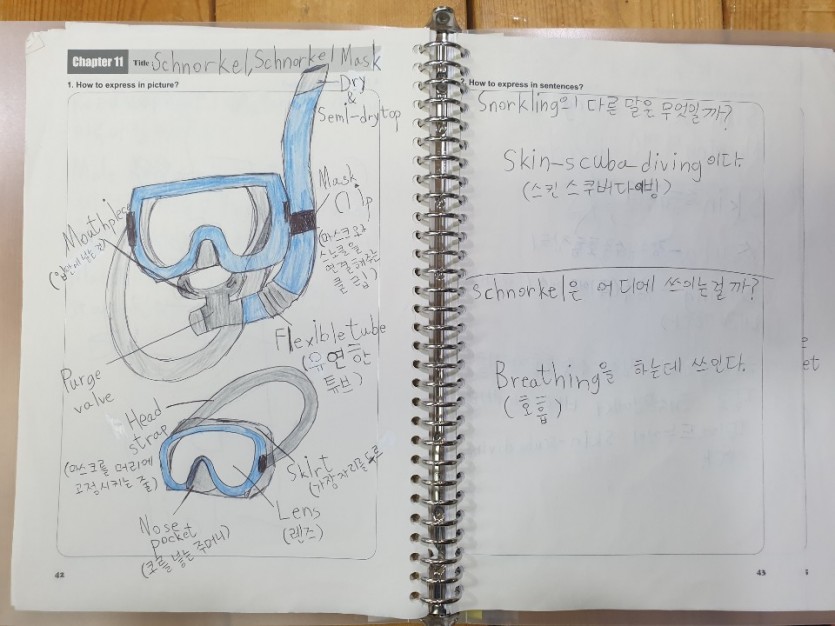 Chapter 11 Title: Schnorkel, Schnorkel Mask
1. How to express in picture?
Dry
&
Semi-dry top
Mask
Clip
(마스크와
스노클을
연결해주는
클립)
Mouthpiece
(입안에 넣는 것)
Flexible tube
(유연한
튜브)
Purge
valve
Head
strap
(마스크를 머리에
고정시키는 줄)
Skirt
(가장자리를
Lens
(렌즈)
Nose
pocket
(코를 넣는 주머니)
42
2. How to express in sentences?
Snorkling의 다른 말은 무엇일까?
Skin-scuba diving이다.
(스킨 스쿠버다이빙)
Schnorkel은 어디에 쓰이는걸까?
Breathing을 하는데 쓰인다.
(호흡)
43
et